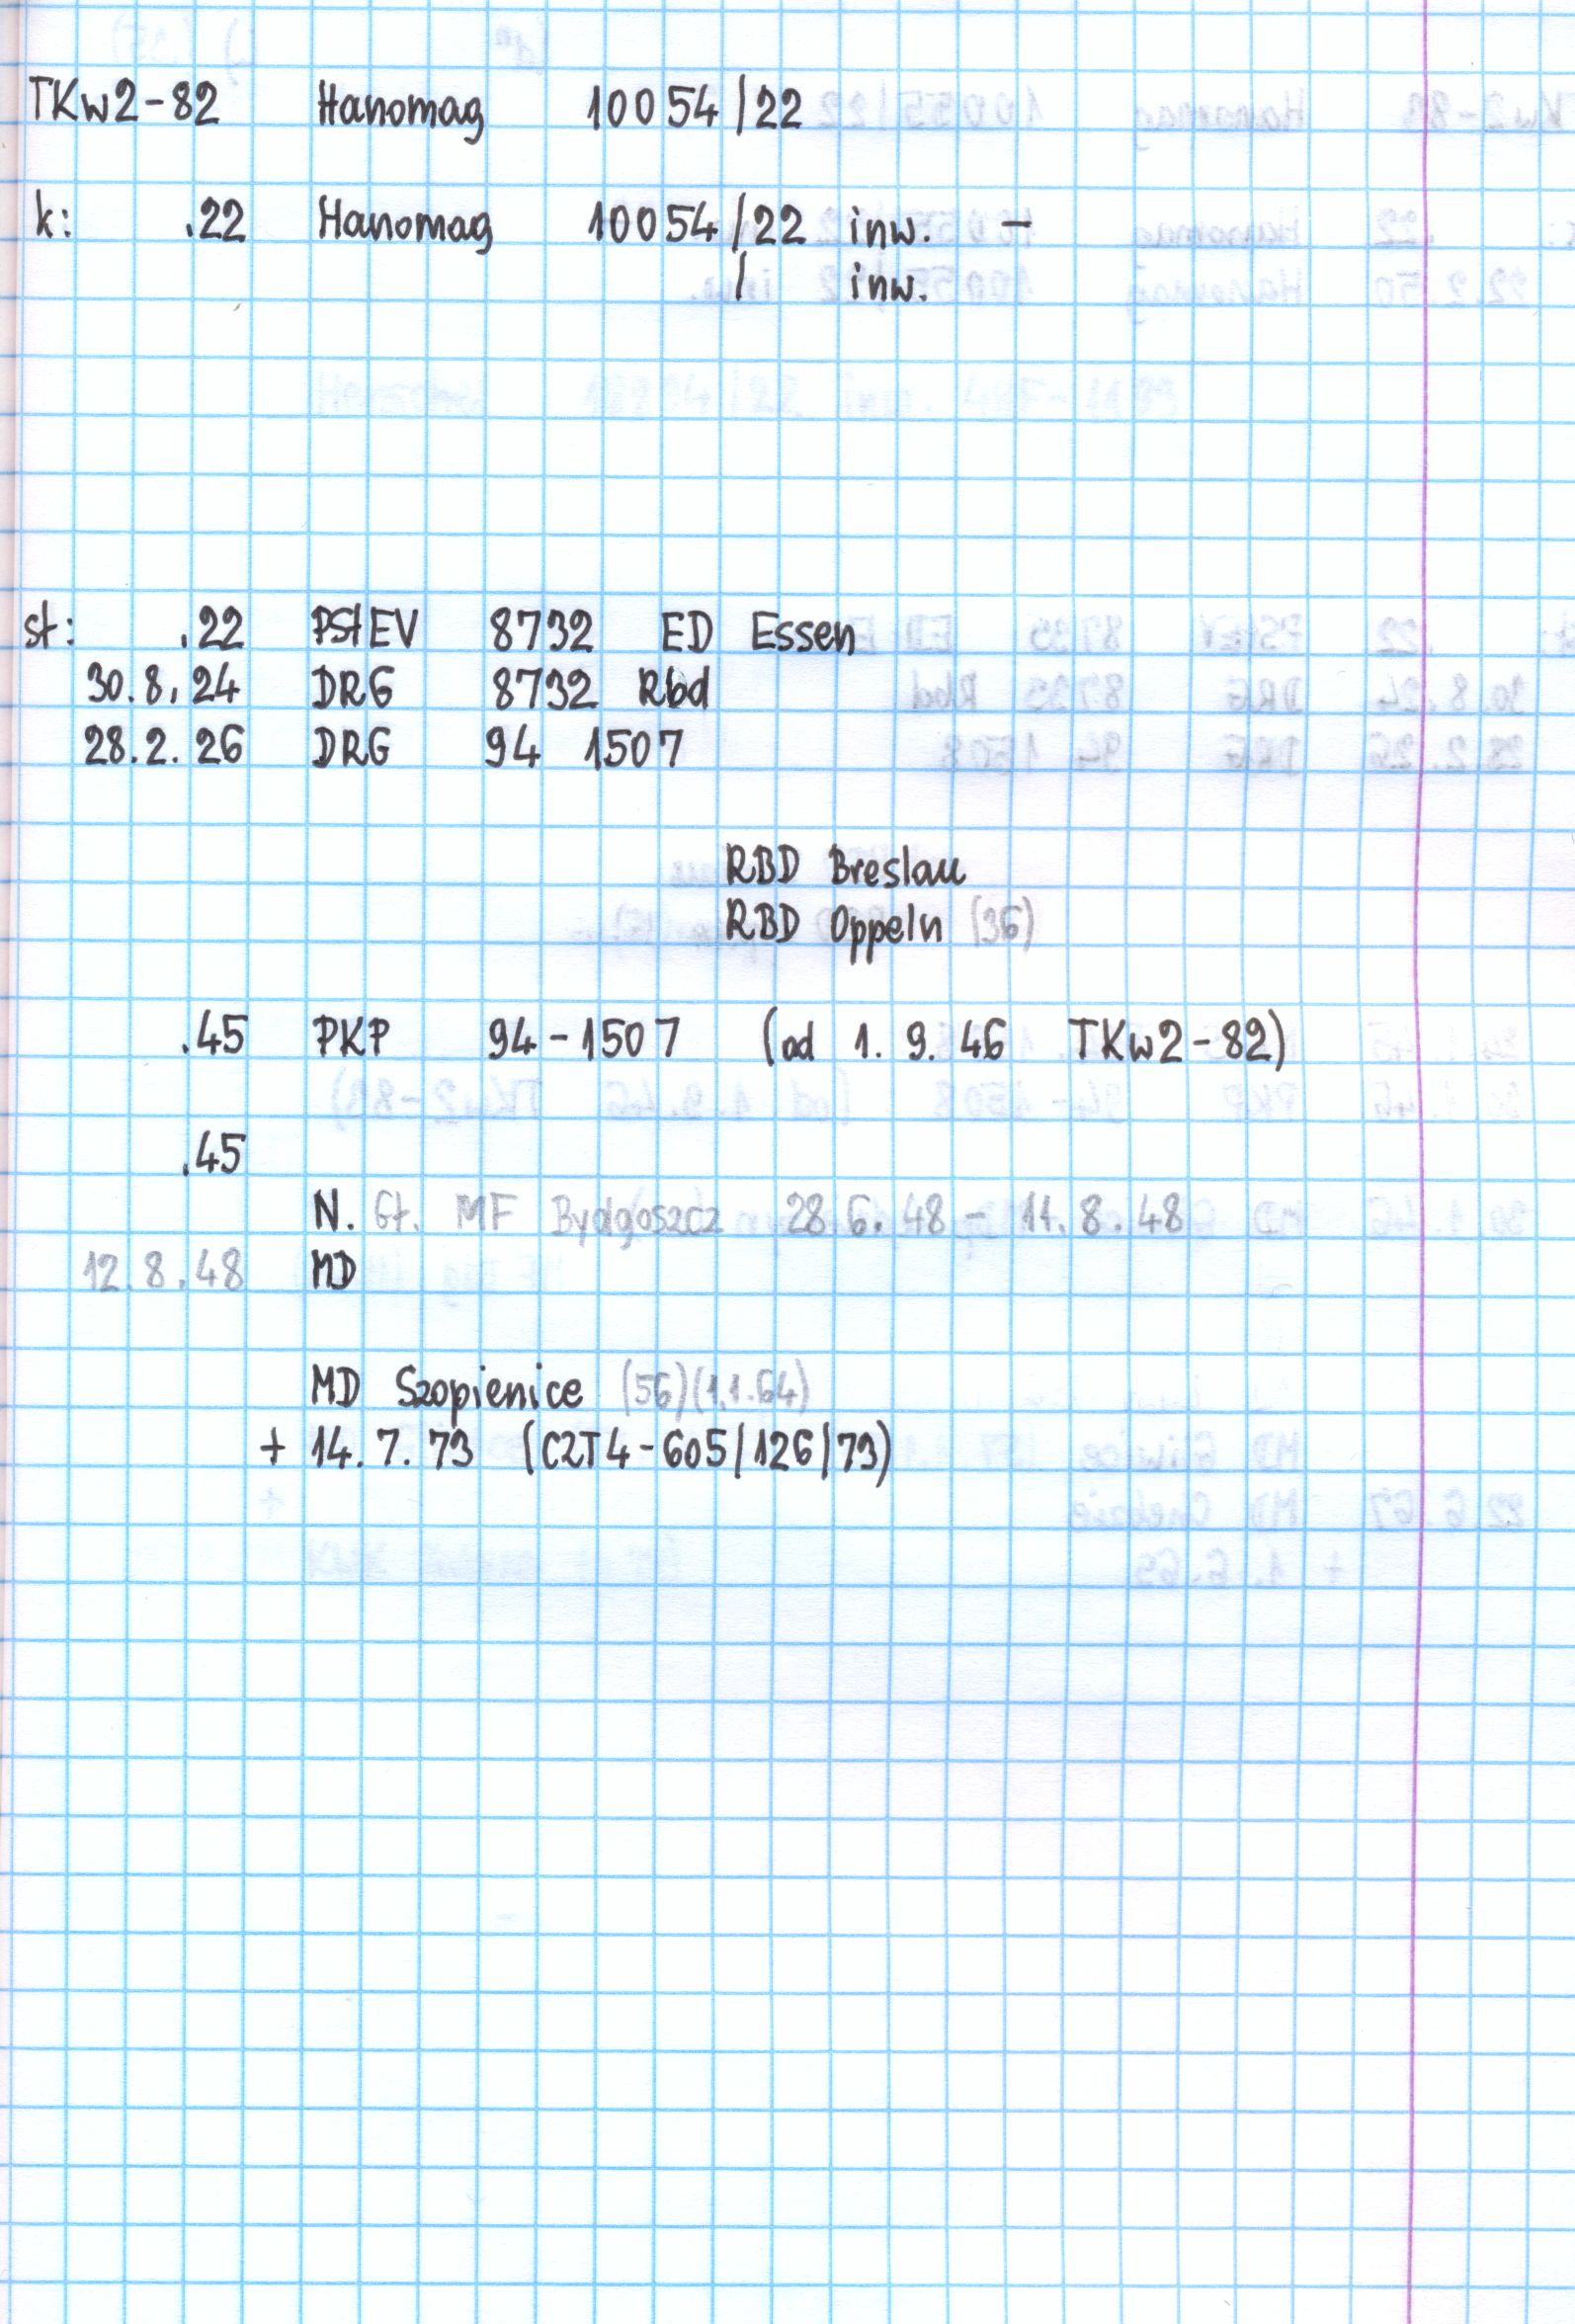 TKw2-82 Hanomag 10054/22
k: .22 Hanomag 10054/22 inw. –
/ inw.
st: .22 PStEV 8732 ED Essen
30.8.24 DRG 8732 Rbd
28.2.26 DRG 94 1507
RBD Breslau
RBD Oppeln (36)
.45 PKP 94-1507 (od 1.9.46 TKw2-82)
.45
N. Gł. MF Bydgoszcz 28.6.48 – 11.8.48
12.8.48 MD
MD Szopienice (56)(1.1.64)
+ 14.7.73 (CZT4-605/126/73)